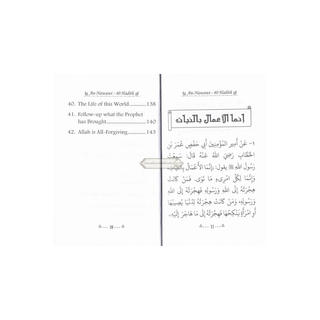 An-Nawawi - 40 Hadith
40. The Life of this World 138
41. Follow-up what the Prophet
has Brought 140
42. Allah is All-Forgiving 143
An-Nawawi - 40 Hadith
إنما الأعمال بالنيات
١- عَنْ أَمِيرِ المُؤْمِنِينَ أَبِي حَفْصٍ عُمَرَ بْنِ
الخَطَّابِ رَضِيَ اللهُ عَنْهُ قَالَ: سَمِعْتُ
رَسُولَ اللهِ ﷺ يَقُولُ: «إِنَّمَا الأَعْمَالُ بِالنِّيَّاتِ،
وَإِنَّمَا لِكُلِّ امْرِىءٍ مَا نَوَى. فَمَنْ كَانَتْ
هِجْرَتُهُ إِلَى اللهِ وَرَسُولِهِ فَهِجْرَتُهُ إِلَى اللهِ
وَرَسُولِهِ، وَمَنْ كَانَتْ هِجْرَتُهُ لِدُنْيَا يُصِيبُهَا
أَوِ امْرَأَةٍ يَنْكِحُهَا فَهِجْرَتُهُ إِلَى مَا هَاجَرَ إِلَيْهِ.